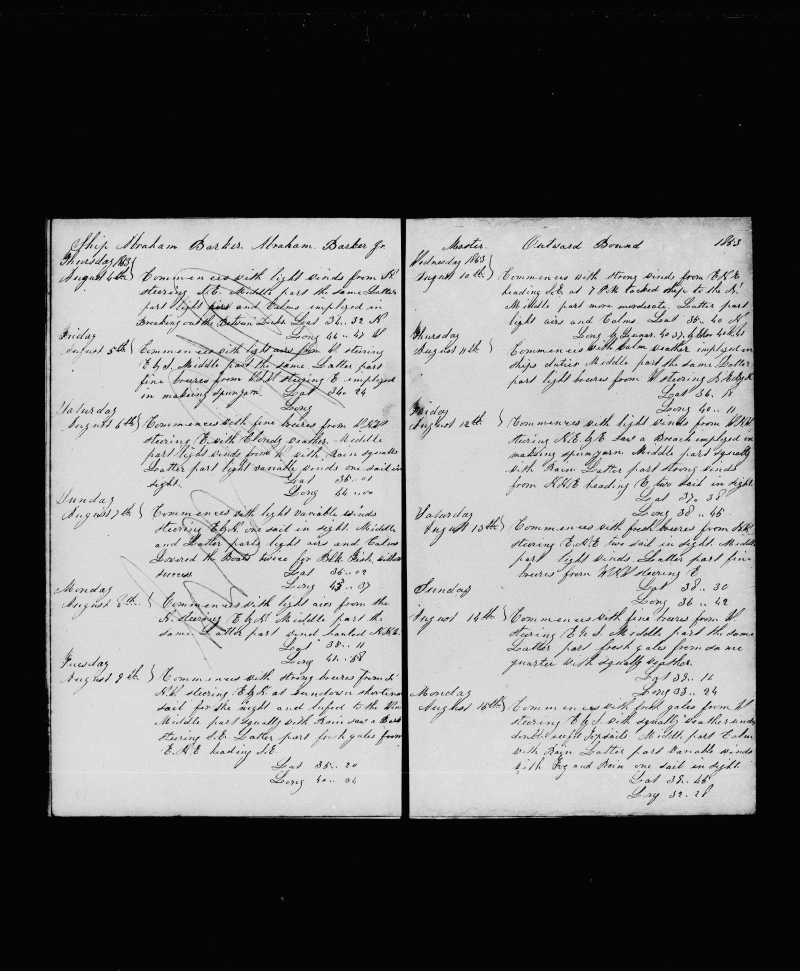 Ship Abraham Barker. Abraham Barker Jr
Thursday 1863
August 4th } Commences with light winds from N
steering S.E. Middle part the same Latter
part light airs and Calms employed in
Breaking out the Between Decks Lat 34.. 32 N
Long 44 .. 47 W
Friday
August 5th } Commences with light airs from W steering
E by S. Middle part the same Latter part
fine breeres from steering E employed
in making spunyarn Lat 34.. 24
Long
Saturday
August 6th } Commences with fine breeres from WNW
steering E. with Cloudy weather. Middle
part light winds from W with Rain squalls
Latter part light variable winds one sail in
sight. Lat 35..
Long 44..00
Sunday
August 7th } Commences with light variable winds
steering E by N. one sail in sight. Middle
and Latter parts light airs and Calms
Lowered the Boats twice for Blk. Fish. without
success Lat 35..02
Long 43..37
Monday
August 8th } Commences with light airs from the
N. steering E by N Middle part the
same. Latter part wind hauled N.N.E.
Lat 35.. 11
Long 41..58
Tuesday
August 9th } Commences with strong breeres from
N.W. steering E by N. at sundown shortined
sail for the night and lufed to the Wind
Middle part squally with Rain saw a Bark
steering S.E. Latter part fresh gales from
E.N.E heading S.E
Lat 35.. 20
Long 40.. 04
Master. Outward Bound 1863
Wednesday 1863
August 10th } Commences with strong winds from E.N.E
heading S.E at 7 P.M tacked ship to the N.
Middle part more moderate, Latter part
light airs and Calms Lat 35.. 40 N
Long by Lunar. 40 37, by
Thursday
August 11th } Commences with Calm weather employed in
ships duties Middle part the same Latter
part light breeres from W steering
Lat 36..18
Long 40.. 11
Friday
August 12th } Commences with light winds from WNW
steering N.E. by E Saw a Breach employed in
making spunyarn. Middle part squally
with Rain Latter part strong winds
from N.N.E heading E, two sail in sight
Lat 37.. 38
Long 38.. 45
Saturday
August 13th } Commences with fresh breeres from N.W.
steering E.N.E two sail in sight. Middle
part light winds. Latter part fine
breeres from W.N.W steering E
Lat 38.. 30
Long 36.. 42
Sunday
August 14th } Commences with fine breeres from W.
steering E by S. Middle part the same
Latter part fresh gales from same
quarter with squally weather.
Lat 39.. 16
Long 33.. 24
Monday
August 15th } Commences with fresh gales from W
steering E by S. with squally weather under
double reefed Topsails Middle part Calm
with Rain Latter part Variable winds
with Fog and Rain one sail in sight.
Lat 38.. 45
Long 32.. 28